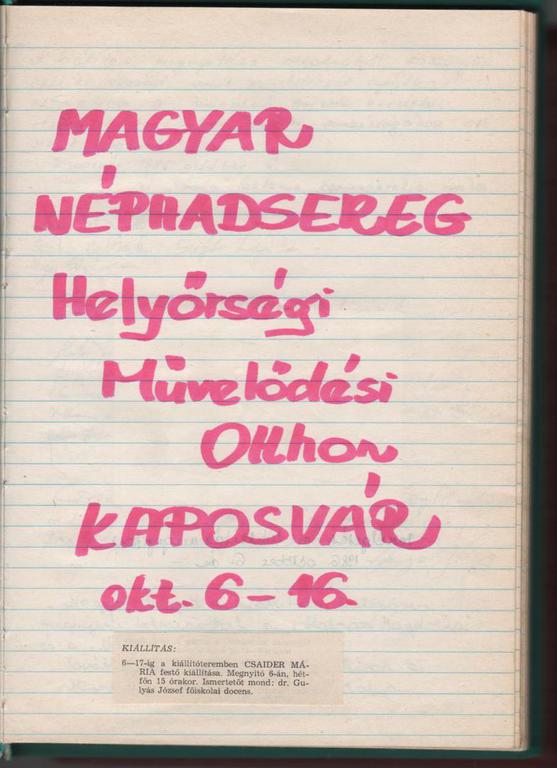 MAGYAR
NÉPHADSEREG
Helyőrségi
Művelődési
Otthon
KAPOSVÁR
okt. 6-16.
KIÁLLÍTÁS:
6—17-ig a kiállítóteremben CSAIDER MÁ-
RIA festő kiállítása. Megnyitó 6-án, hét-
főn 15 órakor. Ismertetőt mond: dr. Gu-
lyás József főiskolai docens.